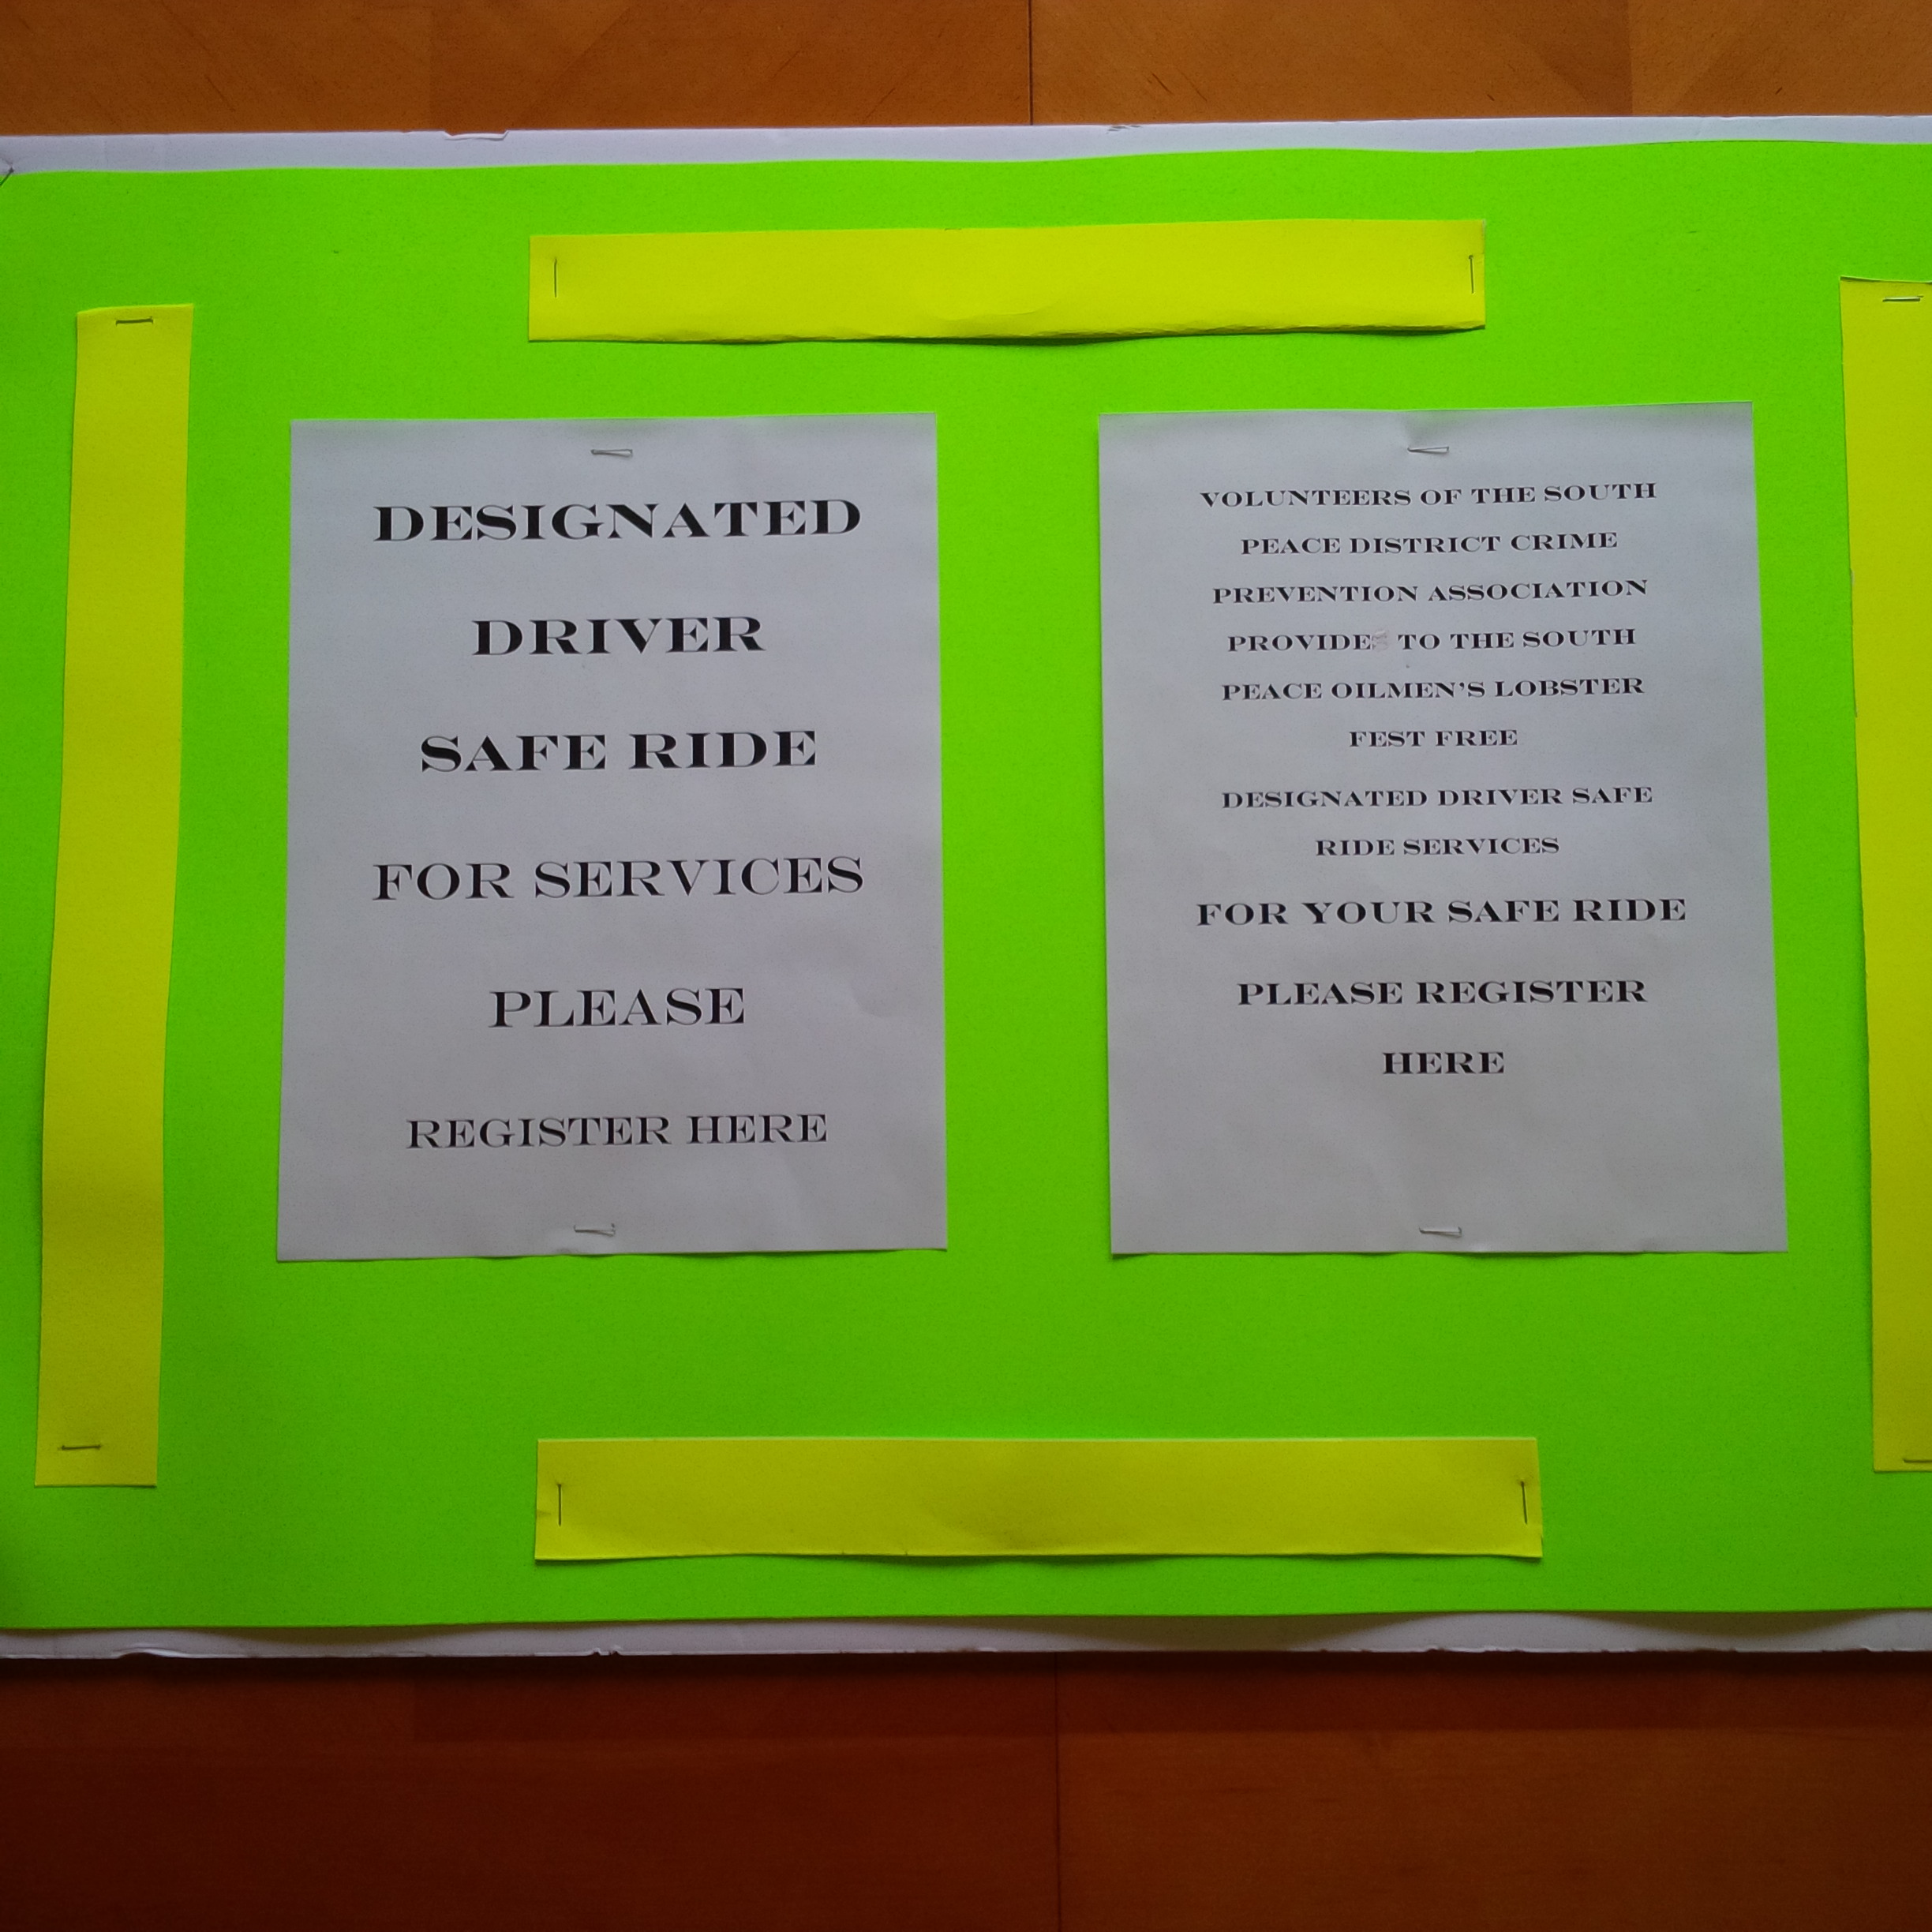 DESIGNATED
DRIVER
SAFE RIDE
FOR SERVICES
PLEASE
REGISTER HERE
VOLUNTEERS OF THE SOUTH
PEACE DISTRICT CRIME
PREVENTION ASSOCIATION
PROVIDE TO THE SOUTH
PEACE OILMEN'S LOBSTER
FEST FREE
DESIGNATED DRIVER SAFE
RIDE SERVICES
FOR YOUR SAFE RIDE
PLEASE REGISTER
HERE